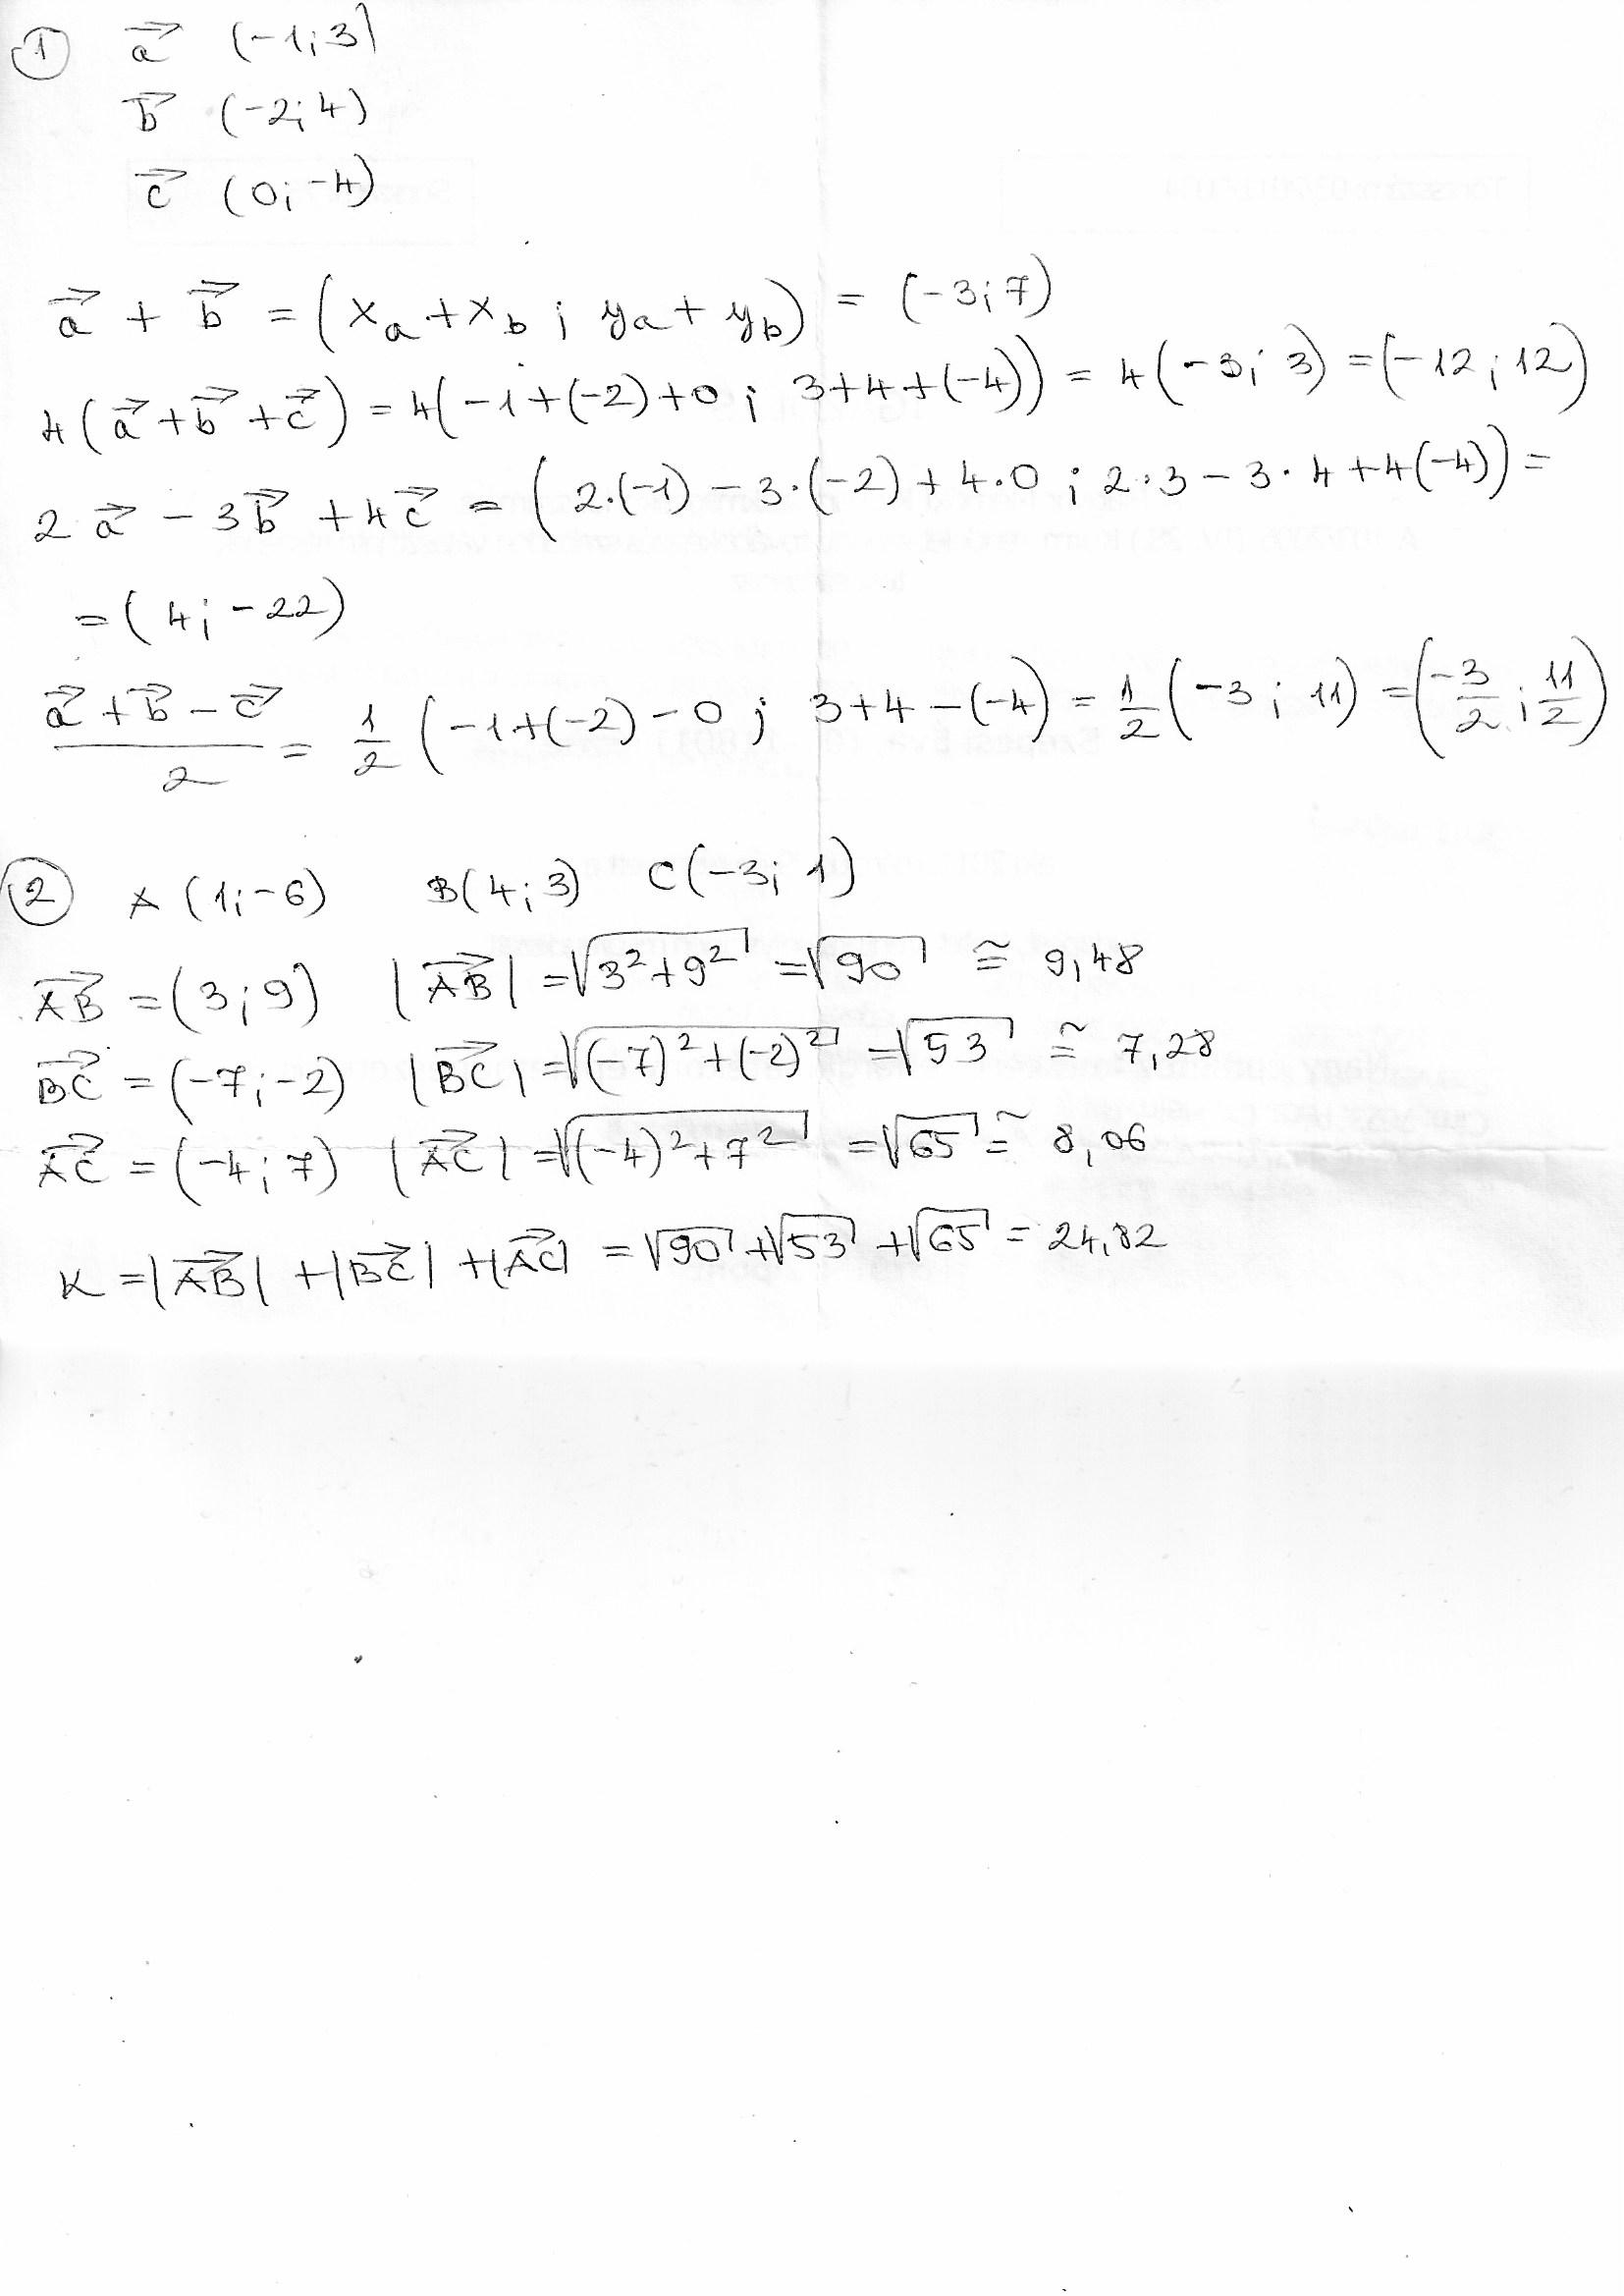 ① a⃗ (-1; 3)
b⃗ (-2; 4)
c⃗ (0; -4)
a⃗ + b⃗ = (x_a + x_b ; y_a + y_b) = (-3; 7)
4(a⃗ + b⃗ + c⃗) = 4(-1+(-2)+0 ; 3+4+(-4)) = 4(-3; 3) = (-12; 12)
2a⃗ - 3b⃗ + 4c⃗ = (2·(-1) - 3·(-2) + 4·0 ; 2·3 - 3·4 + 4(-4)) =
= (4; -22)
(a⃗ + b⃗ - c⃗)/2 = 1/2 (-1+(-2)-0 ; 3+4-(-4)) = 1/2 (-3 ; 11) = (-3/2 ; 11/2)
② A (1; -6) B(4; 3) C(-3; 1)
AB⃗ = (3; 9) |AB⃗| = √(3²+9²) = √90 ≅ 9,48
BC⃗ = (-7; -2) |BC⃗| = √((-7)²+(-2)²) = √53 ≅ 7,28
AC⃗ = (-4; 7) |AC⃗| = √((-4)²+7²) = √65 ≅ 8,06
K = |AB⃗| + |BC⃗| + |AC⃗| = √90 + √53 + √65 = 24,82